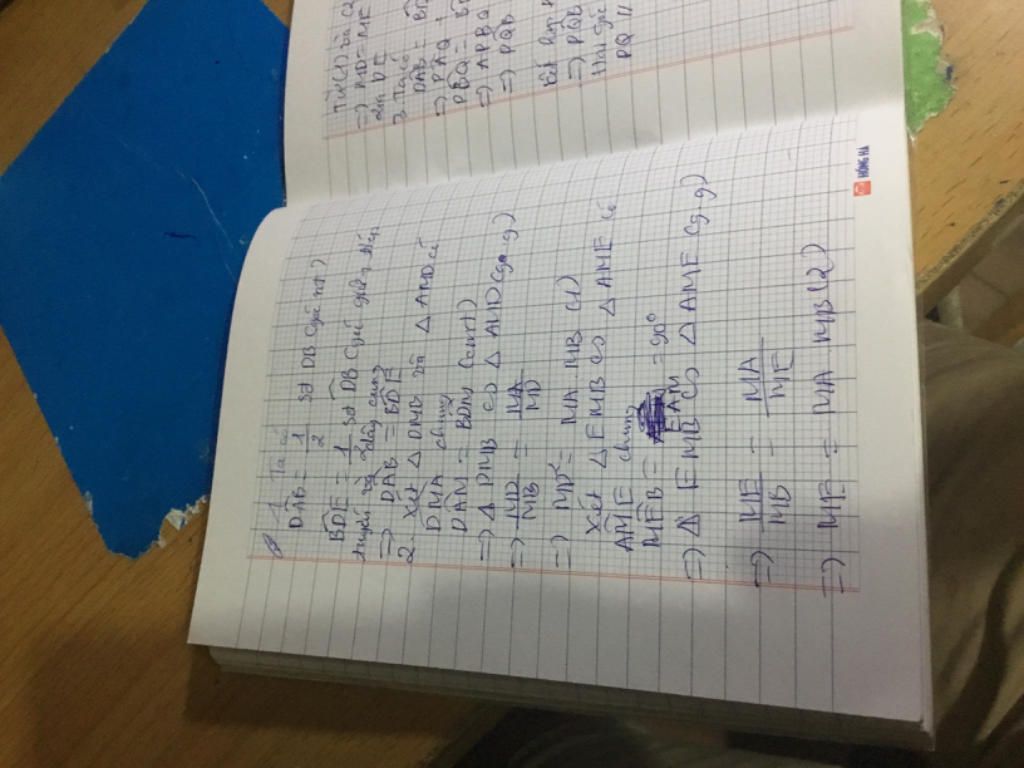 1 Ta có
DAB = 1/2 sđ DB (góc nt)
BDE = 1/2 sđ DB (góc giữa tiếp
tuyến và dây cung
=> DAB = BDE
2. Xét Δ DMB và Δ AMD có
DMA chung
DAM = BDM (cmt)
=> Δ DMB ∽ Δ AMD (g-g)
=> MD/MB = MA/MD
=> MD² = MA MB (1)
Xét Δ EMB ∽ Δ AME có
AME chung
MEB = EAM = 90°
=> Δ EMB ∽ Δ AME (g.g)
=> ME/MB = MA/ME
=> ME² = MA MB (2)
Từ (1) và (2)
=> MD = ME
DE
3. Ta có
DAB =
=> PAQ
PBQ =
=> APBQ
=> PQB
=> PQB
PQ //
HỒNG HÀ